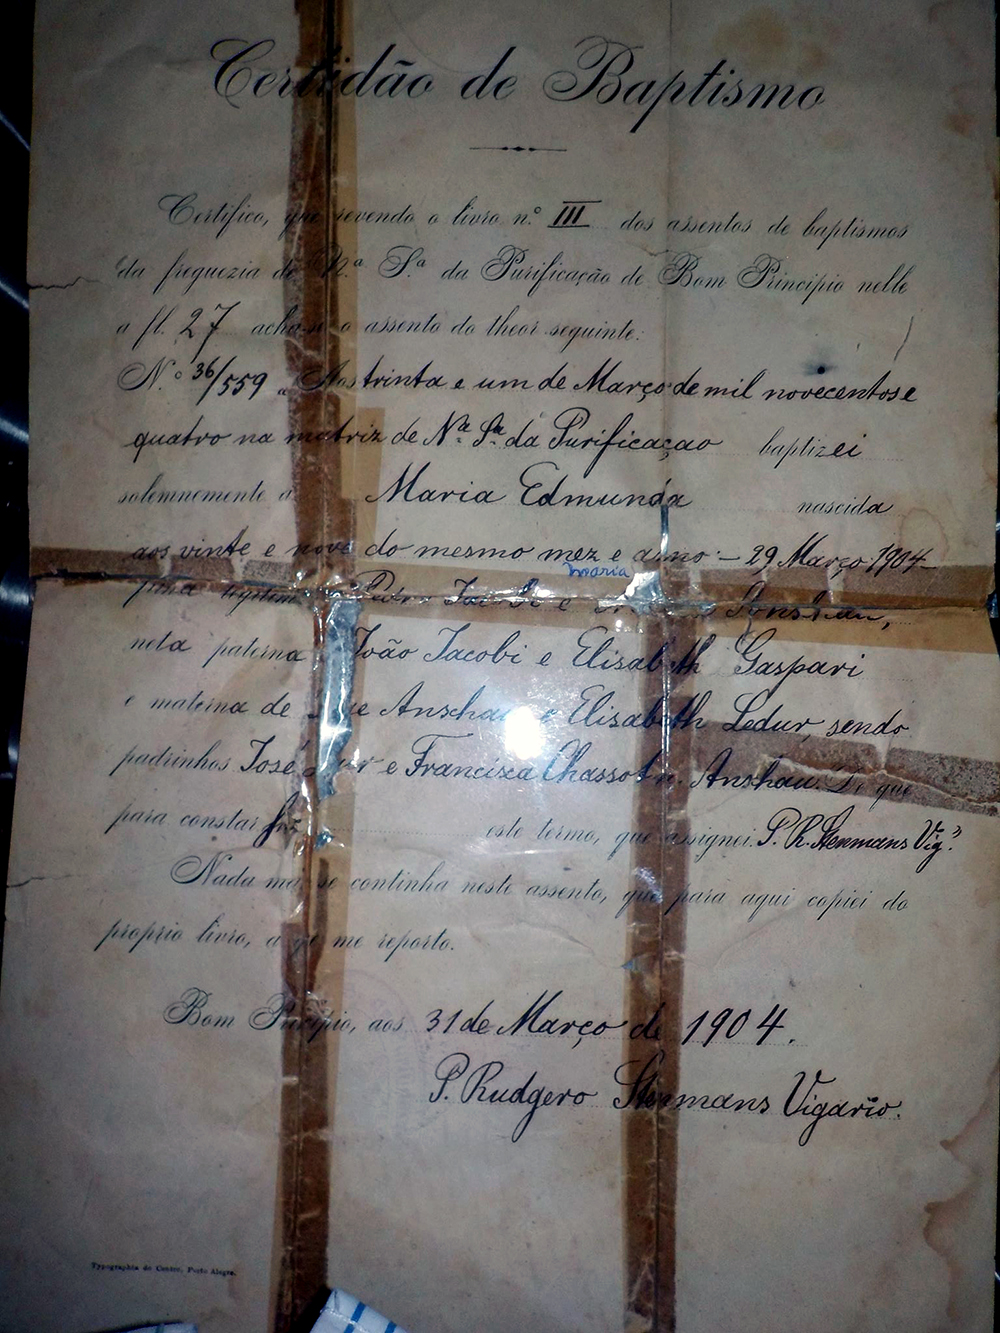 Certidão de Baptismo
Certifico, que revendo o livro n.º III dos assentos de baptismos
da freguezia de N.ª S.ª da Purificação de Bom Principio nelle
a fl. 27 acha-se o assento do theor seguinte:
N.º 36/559 Aos trinta e um de Março de mil novecentos e
quatro na matriz de Nª Sª da Purificaçao baptizei
solemnemente a Maria Edmunda nascida
aos vinte e nove do mesmo mez e anno - 29 Março 1904
maria
filha legitima Pedro Jacobi e
neta paterna João Jacobi e Elisabeth Gaspari
e materna de Anschau e Elisabeth Ledur, sendo
padrinhos José e Francisca Chassot n. Anshau. De que
para constar fiz este termo, que assignei. P. R. Stenmans Vig.º
Nada mais se continha neste assento, que para aqui copiei do
proprio livro, a q me reporto.
Bom Principio, aos 31 de Março de 1904.
P. Rudgero Stenmans Vigario.
Typographia do Centro, Porto Alegre.